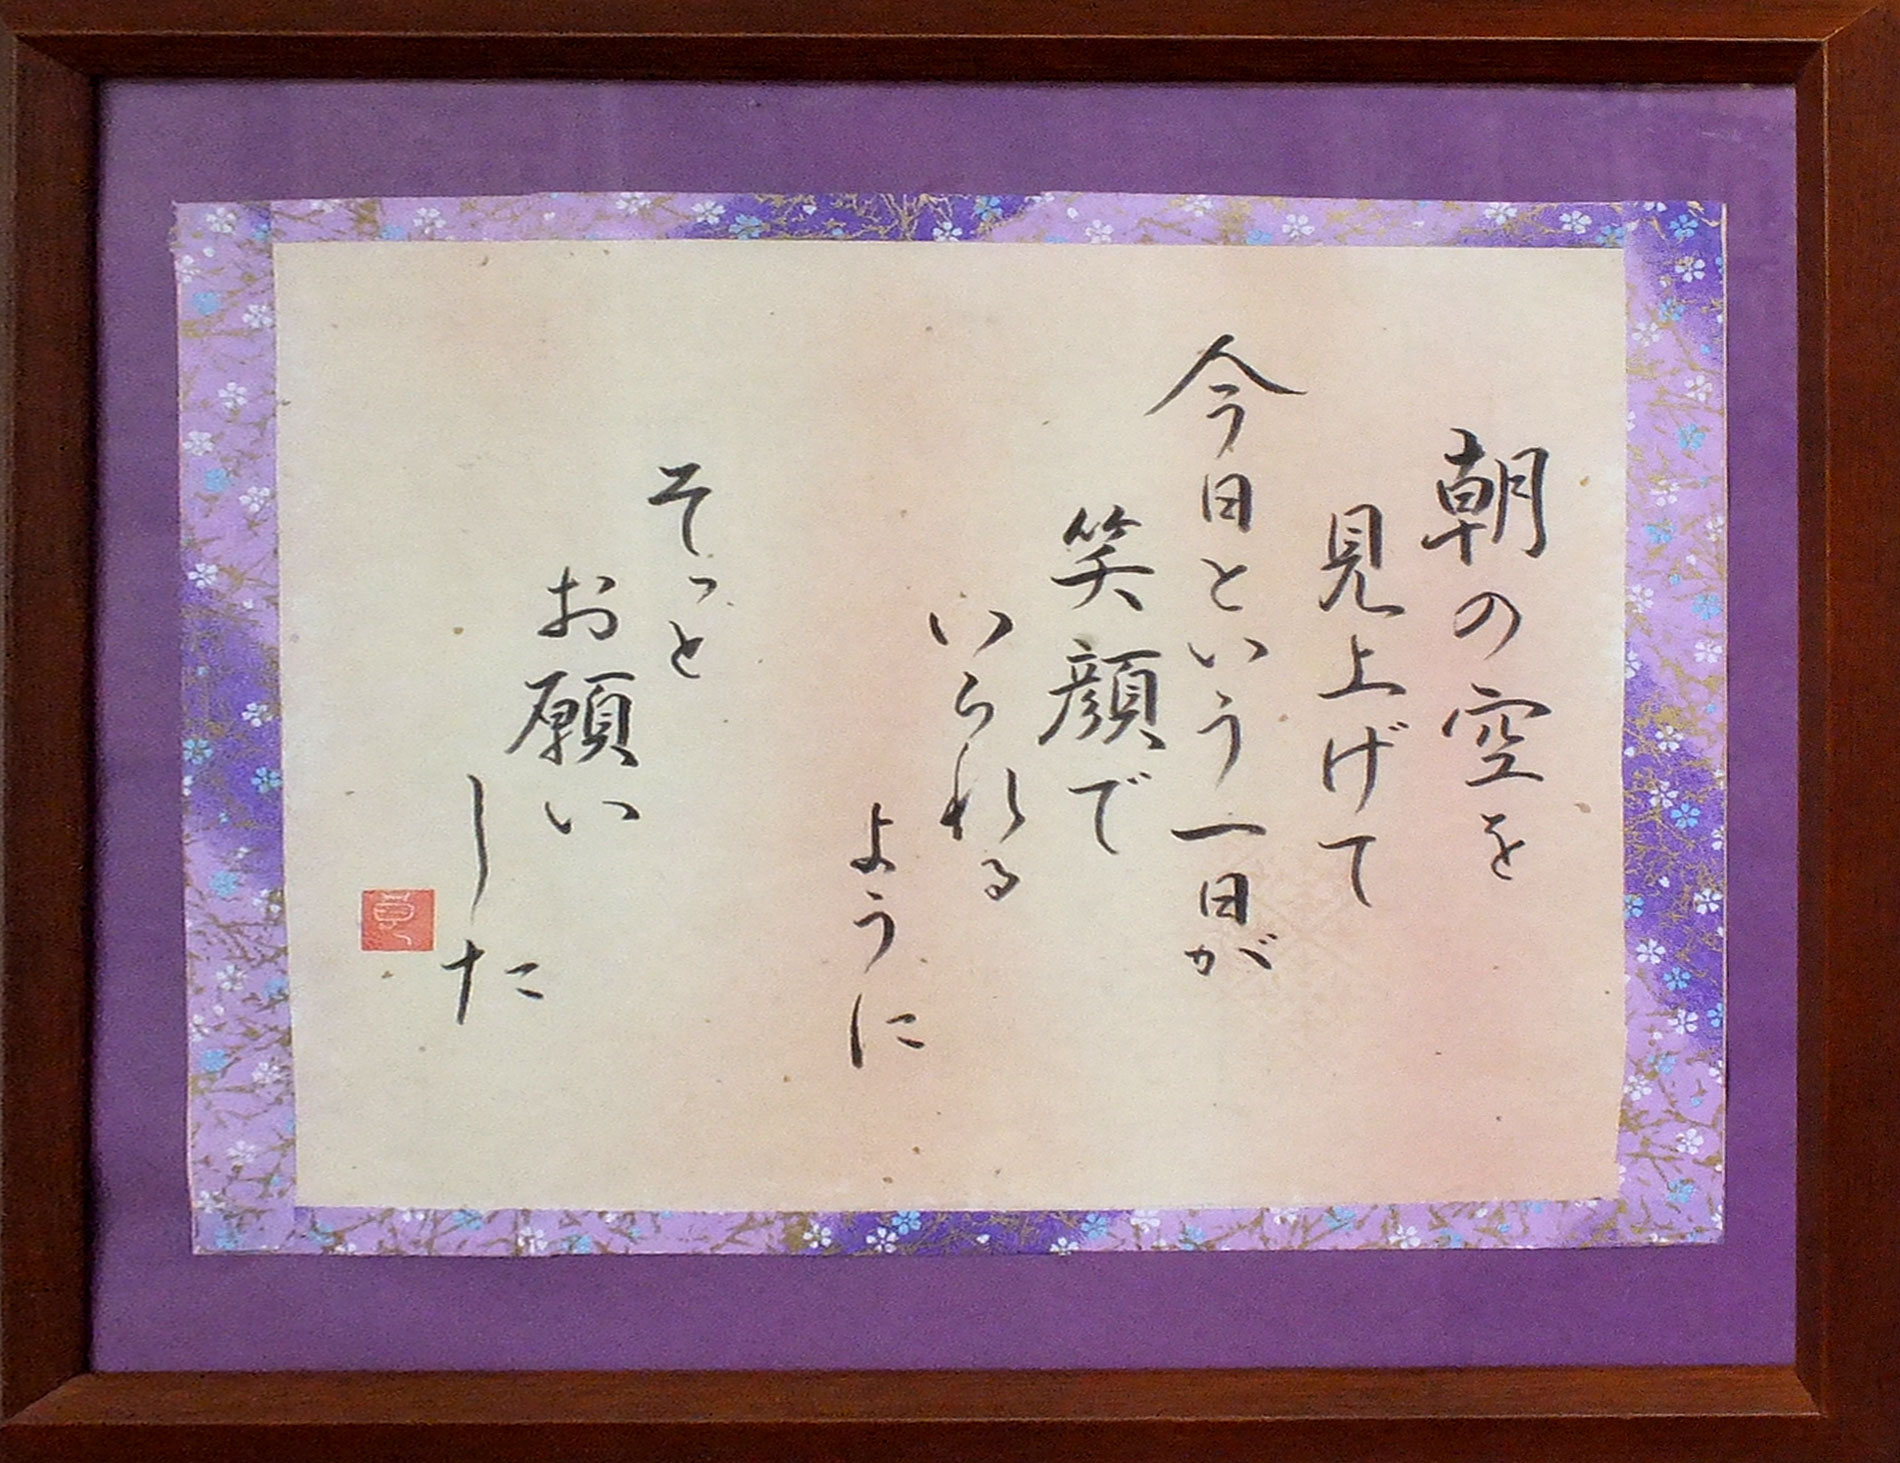 朝の空を
見上げて
今日という一日が
笑顔で
いられる
ように
そっと
お願い
した